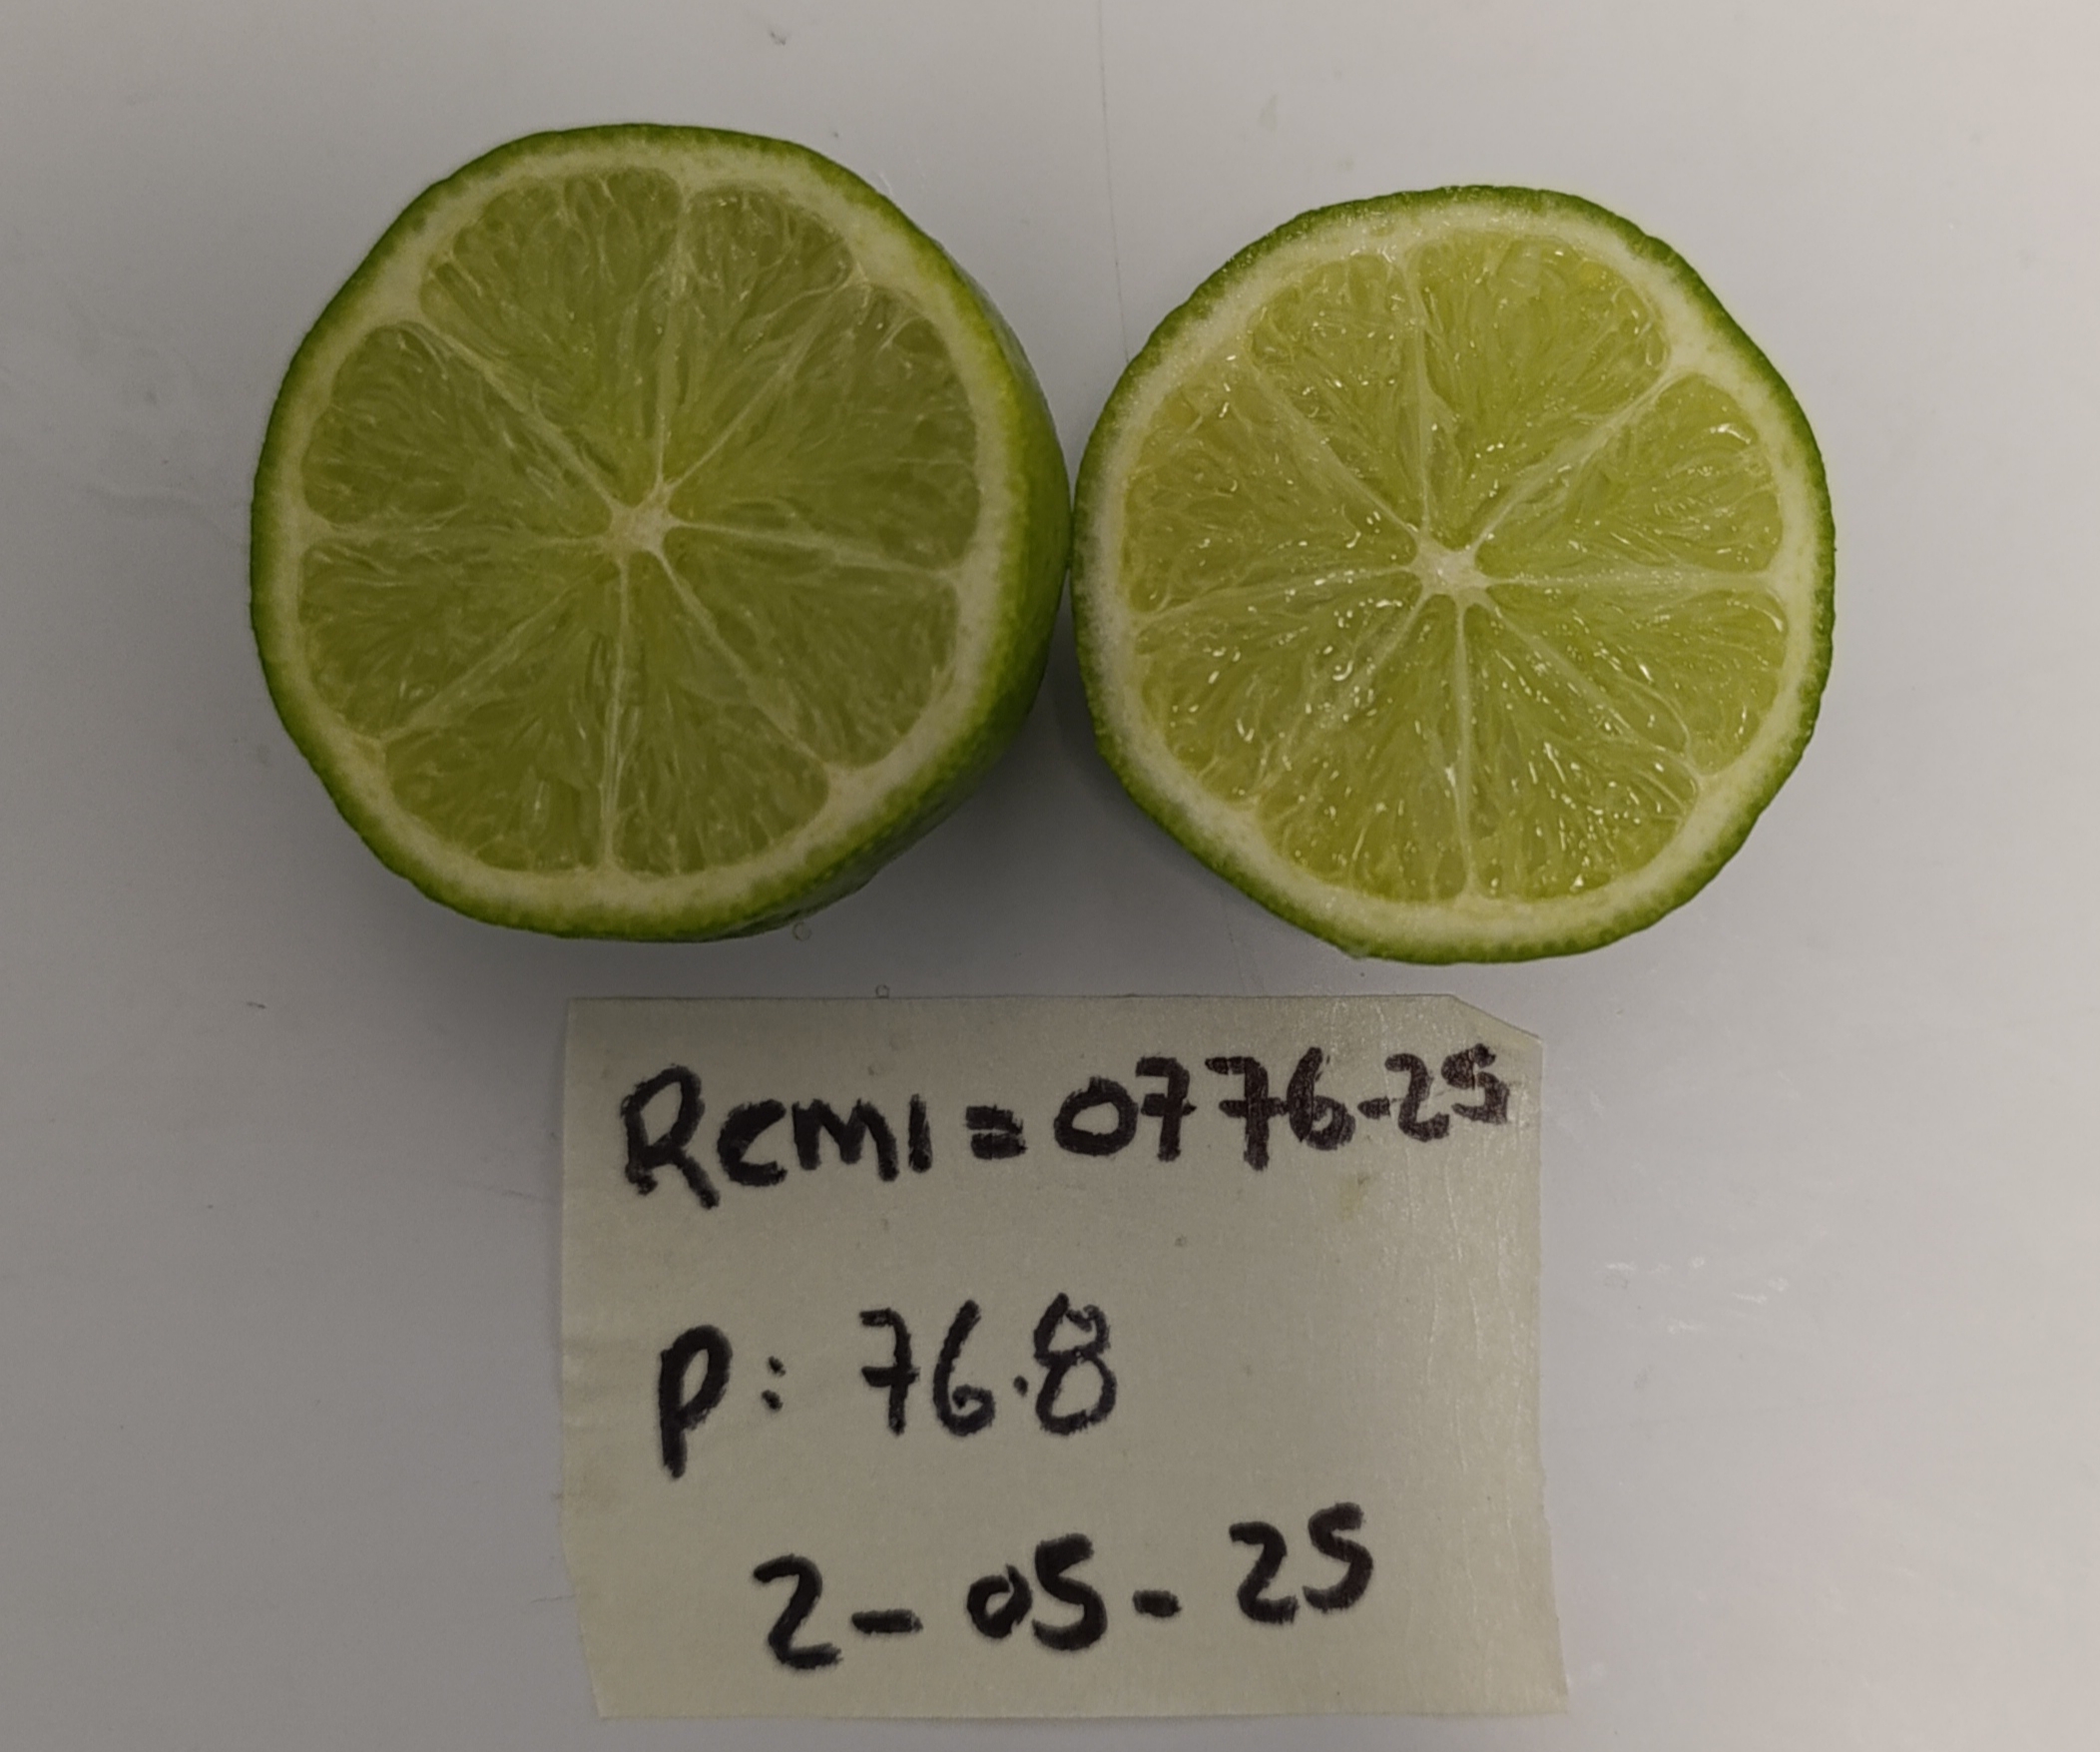 Remi=0776-25
P: 76.8
2-05-25